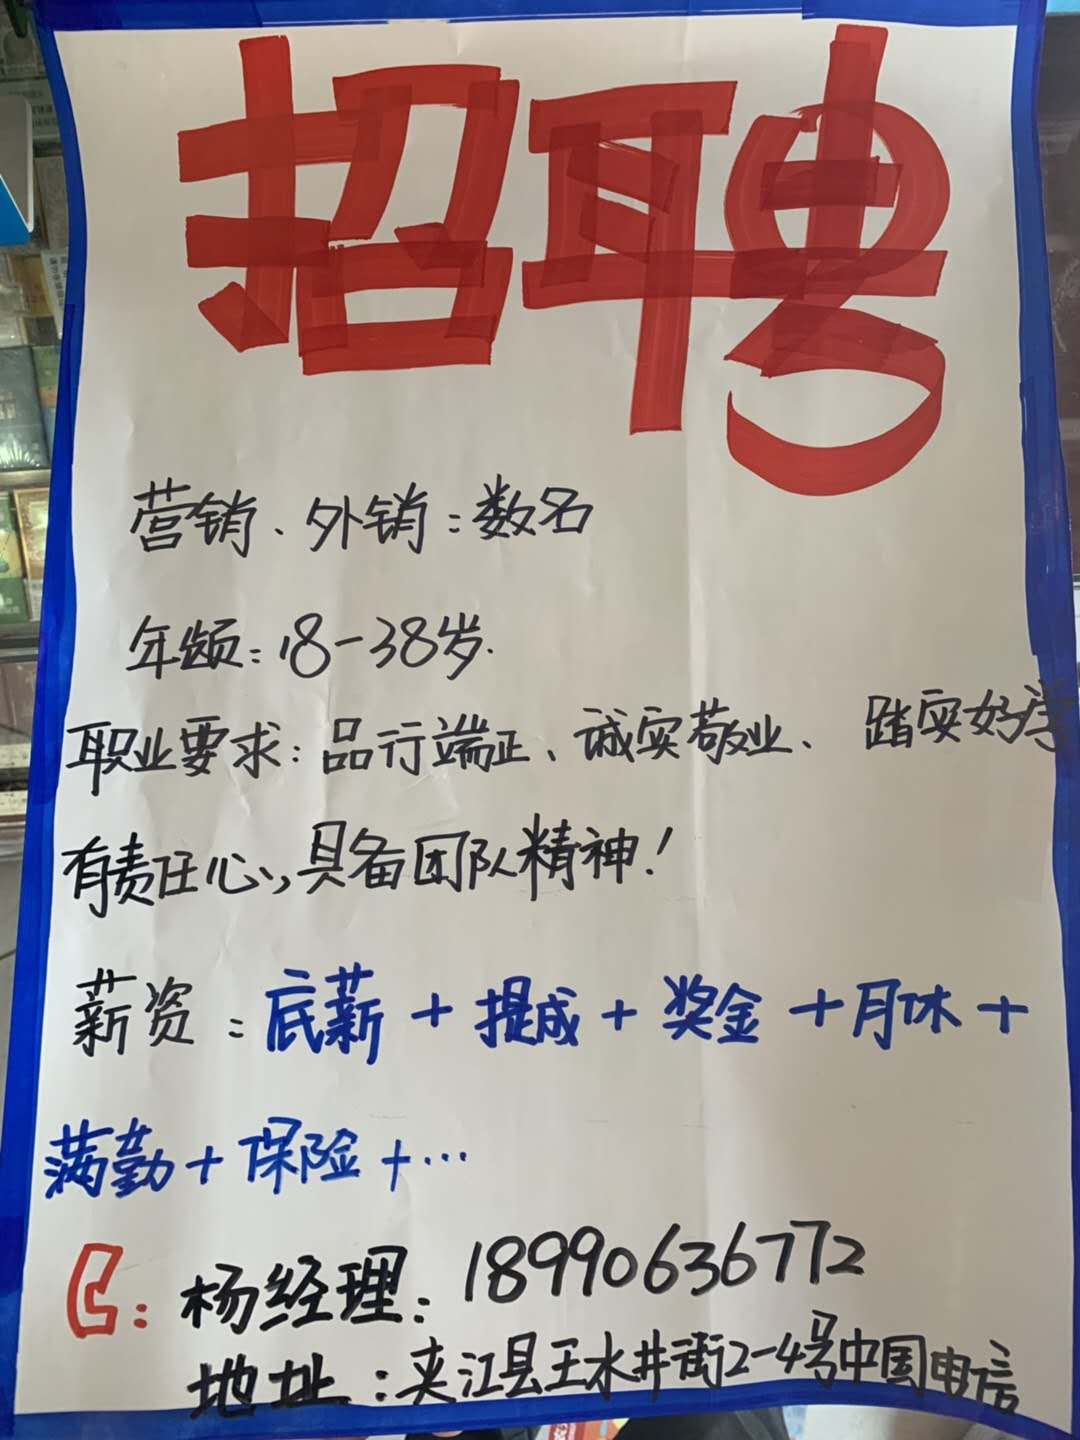 招聘
营销、外销：数名
年龄：18-38岁.
职业要求：品行端正、诚实敬业、踏实好学
有责任心，具备团队精神！
薪资：底薪+提成+奖金+月休+
满勤+保险+…
：杨经理：18990636772
地址：夹江县王水井街2-4号中国电信